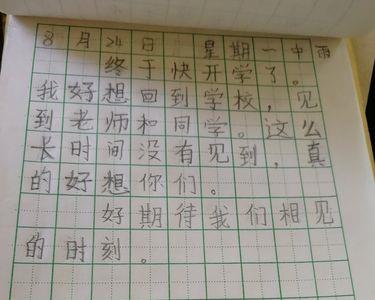 8月24日 星期一中雨
终于快开学了。
我好想回到学校，见
到老师和同学。这么
长时间没有见到，真
的好想你们。
好期待我们相见
的时刻。